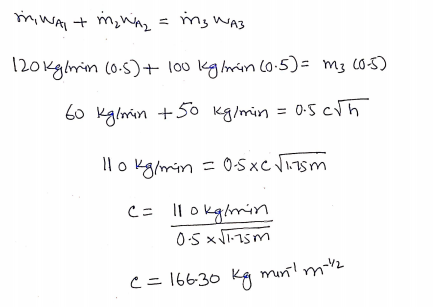 ṁ₁WA₁ + ṁ₂WA₂ = ṁ₃ WA3
120 kg/min (0.5) + 100 kg/min (0.5) = m₃ (0.5)
60 kg/min + 50 kg/min = 0.5 c√h
110 kg/min = 0.5 x c √1.75m
c = 110 kg/min / 0.5 x √1.75m
c = 166.30 kg min⁻¹ m⁻¹/²